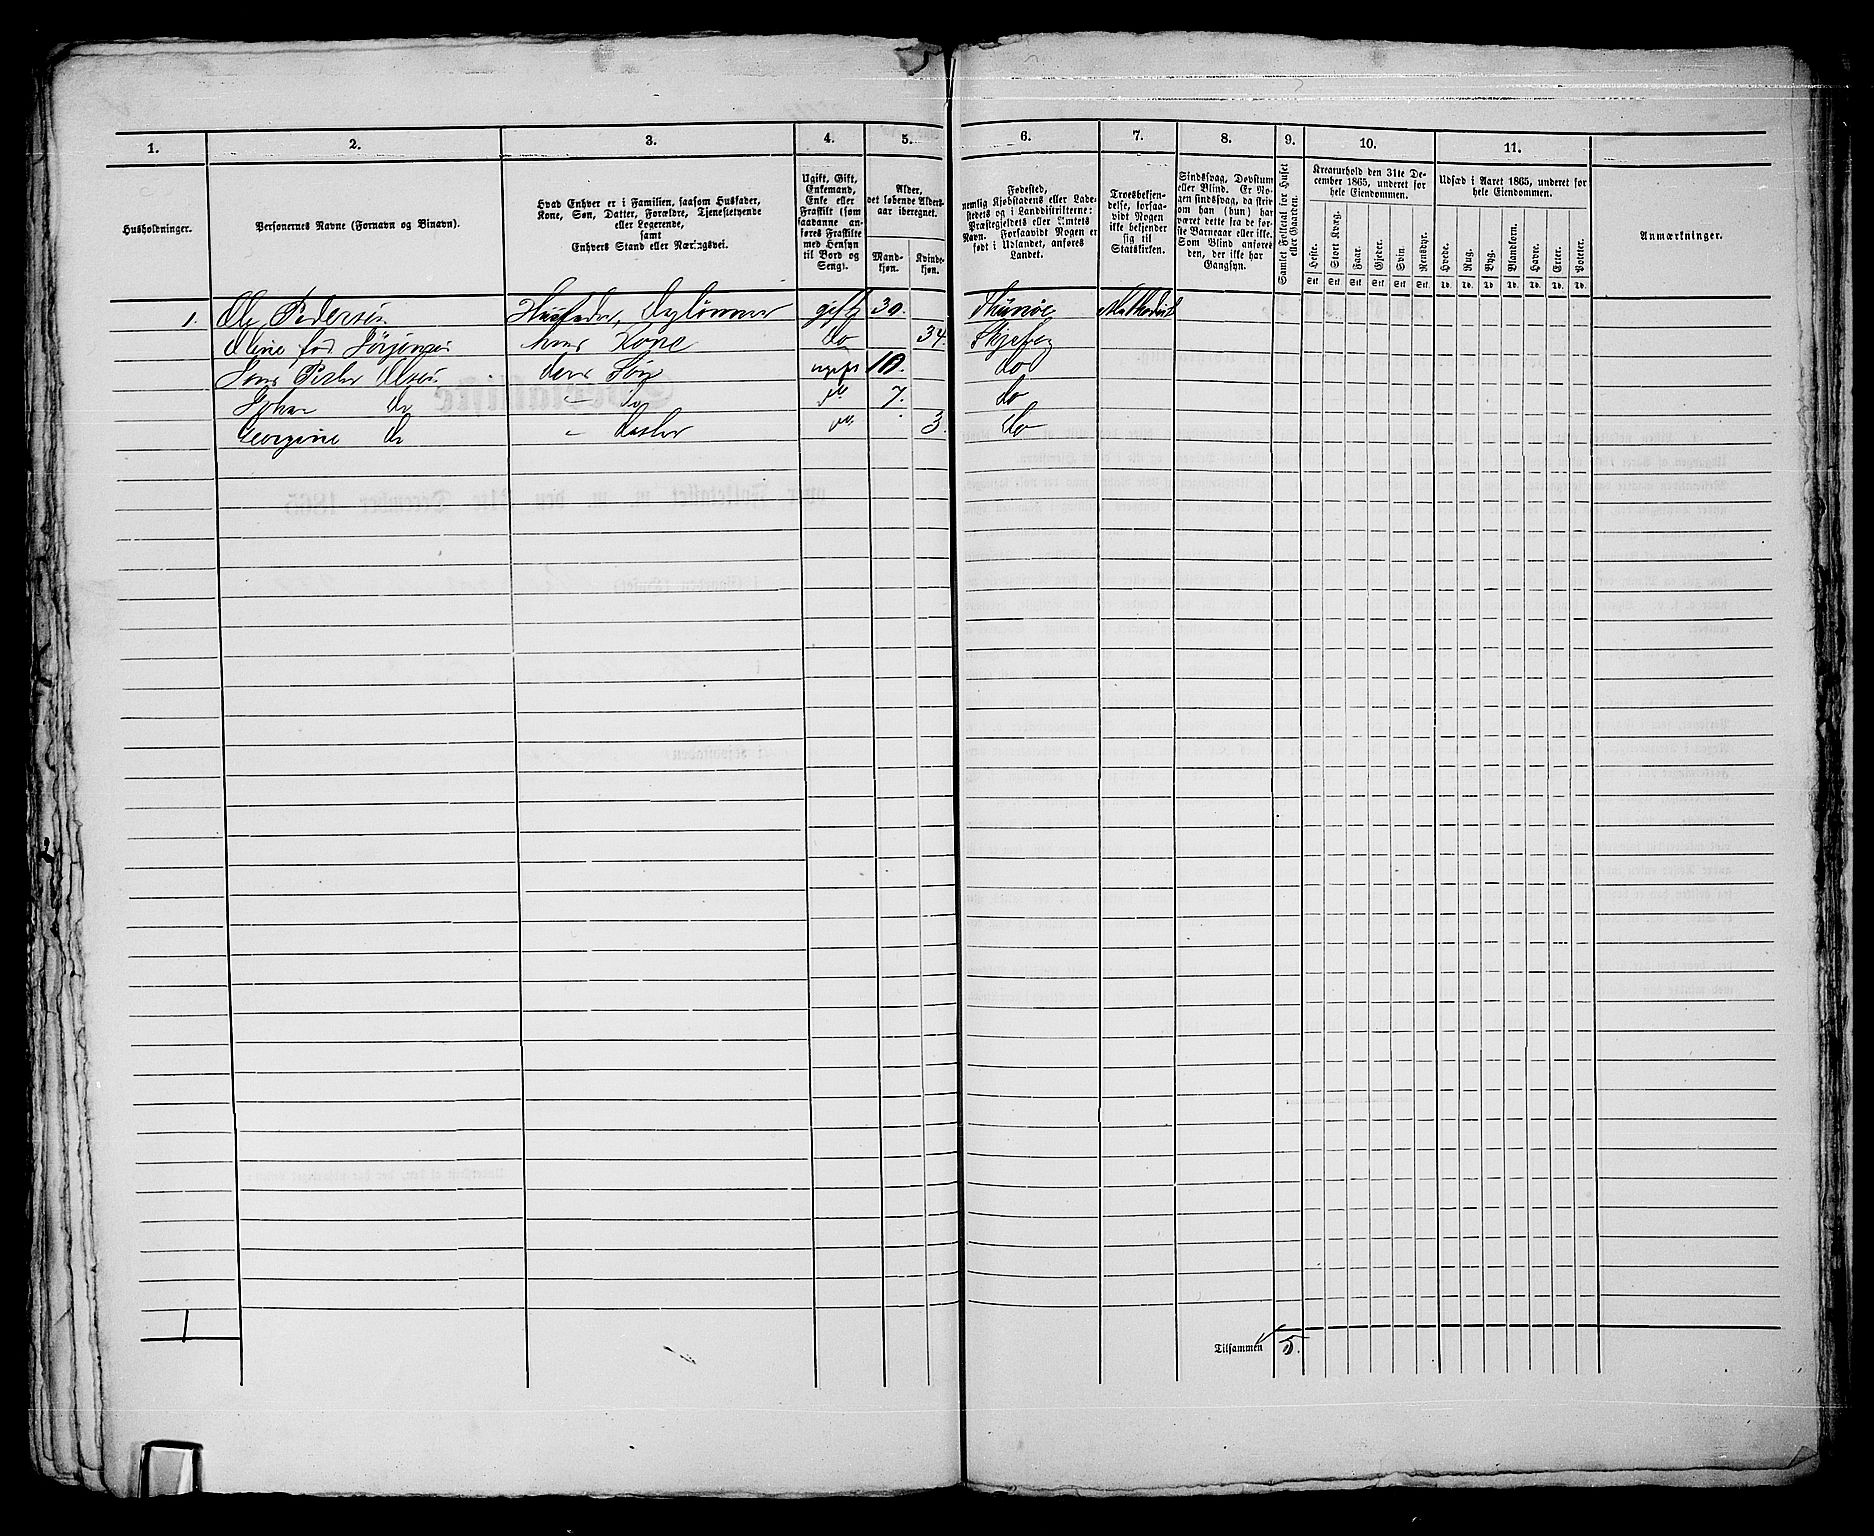 1. 2. 3. 4. 5. 6. 7. 8. 9. 10. 11.
Husholdninger.
Personernes Navne (Fornavn og Binavn).
Hvad Enhver er i Familien, saasom Husfader,
Kone, Søn, Datter, Forældre, Tjenestetyende
eller Logerende,
samt
Enhvers Stand eller Næringsvei.
Ugift, Gift,
Enkemand,
Enke eller
Fraskilt (som
saadanne an-
føres Fraskilte
med Hensyn
til Bord og
Seng).
Alder,
det løbende Alders-
aar iberegnet.
Mand-
kjøn.
Kvinde-
kjøn.
Fødested,
nemlig Kjøbstadens eller Lade-
stedets og i Landdistrikterne:
Præstegjeldets eller Amtets
Navn. Forsaavidt Nogen er
født i Udlandet, anføres
Landet.
Troesbekjen-
delse, forsaa-
vidt Nogen
ikke bekjender
sig til
Statskirken.
Sindssvag, Døvstum
eller Blind. Er No-
gen sindssvag, da skri-
ves om han (hun) har
været dette fra de før-
ste Barneaar eller ikke.
Som Blind anføres
den, der ikke har
Gangsyn.
Samlet Folketal for Huset
eller Gaarden.
Kreaturhold den 31te De-
cember 1865, underet for
hele Eiendommen.
Heste.
Stort Kvæg.
Faar.
Gjeder.
Svin.
Rensdyr.
Stk. Stk. Stk. Stk. Stk. Stk.
Udsæd i Aaret 1865, underet for
hele Eiendommen.
Hvede.
Rug.
Byg.
Blandkorn.
Havre.
Erter.
Poteter.
Td. Td. Td. Td. Td. Td. Td.
Anmærkninger.
1. Ole Pedersen Husfader, Daglønner gift 30. Thunøe Methodist
Oline fød Jørgensen hans Kone do 34. Skjeberg
Hans Peder Olsen deres Søn ugift 10. do
Johan do " do do 7. do
Georgine do " datter do 3. do
1
Tilsammen 5.